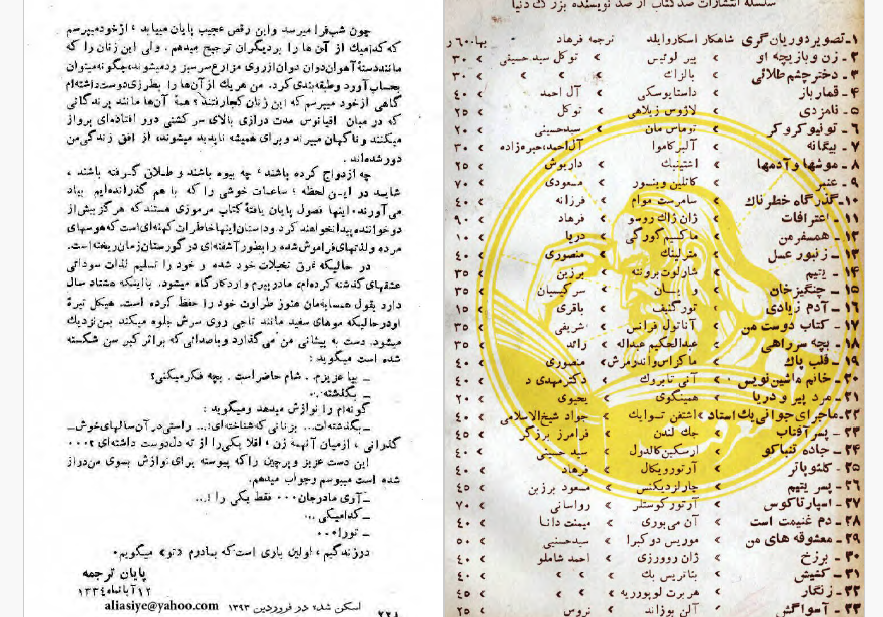 چون شب فرا میرسد واین رقص عجیب پایان مییابد ، ازخودمیپرسم
که کدامیك از آن ها را بردیگران ترجیح میدهم . ولی این زنان را که
مانند دستهٔ آهوان دوان دوان از روی مزارع سرسبز ودمیدوند، چگونه میتوان
بحساب آورد وطبقه بندی کرد. من هریك از آن‌ها را بطرزی دوست داشته‌ام
گاهی ازخود میپرسم که این زنان کجا رفتند ؛ همهٔ آن‌ها مانند پرندگانی
که در میان اقیانوس مدت درازی بالای سر کشتی دور افتاده‌ای پرواز
میکنند وناگهان میپرند وبرای همیشه ناپدید میشوند، از افق زندگی من
دور شده‌اند .
چه ازدواج کرده باشند ، چه بیوه باشند و طلاق گرفته باشند ،
شاید در این لحظه ، ساعات خوشی را که با هم گذرانده‌ایم بیاد
می‌آورند. اینها فصول پایان یافتهٔ کتاب مرموزی هستند که هرگز بیش از
دوخواننده پیدا نخواهند کرد وداستان اینها خاطرات کهنه‌ای است که هوسهای
مرده ولذتهای فراموش شده را بطور آشفته‌ای در گورستان زمان ریخته است.
در حالیکه غرق تخیلات خود شده و خود را تسلیم لذات سودائی
عشقهای گذشته کرده‌ام، مادر پیرم وارد کارگاه میشود. با اینکه هشتاد سال
دارد بقول همسایه‌مان هنوز طراوت خود را حفظ کرده است. هیکل تیرهٔ
اودرحالیکه موهای سفید مانند تاجی روی سرش جلوه میکند بمن نزدیك
میشود. دست به پیشانی من می‌گذارد وباصدائی که براثر کبر سن شکسته
شده است میگوید :
ـ بیا عزیزم . شام حاضر است . بچه فکر میکنی؟
ـ بگذشته...
گونه‌ام را نوازش میدهد ومیگوید :
ـ بگذشته‌ات... بزنانی که شناخته‌ای!... راستی در آن سالهای خوش ـ
گذرانی ، ازمیان آنهمه زن ، اقلا یکی را از ته دل دوست داشته‌ای ؟...
این دست عزیز و پرچین را که پیوسته برای نوازش بسوی من دراز
شده است میبوسم وجواب میدهم.
ـ آری مادرجان... فقط یکی را !...
ـ کدامیکی ...
ـ تورا...
درزندگیم ، اولین باری است که بمادرم «تو» میگویم.
پایان ترجمه
۱۲ آبانماه ۱۳۳٤
اسکن شد، در فروردین ۱۳۹۳ aliasiye@yahoo.com
۲۲۸
سلسله انتشارات صد کتاب از صد نویسنده بزرگ دنیا
۱ـ تصویر دوریان گری شاهکار اسکاروایلد ترجمه فرهاد بها، ۶۰ ر
۲ ـ زن و بازیچه او » پیر لوئیس » توکل سیدحسینی » ۳۰
۳ ـ دختر چشم طلائی » بالزاك » » » ۳۰
۴ ـ قمارباز » داستایوسکی » آل احمد » ٤۰
۵ ـ نامزدی » لاژوس زیلاهی » توکل » ۲۵
۶ ـ تونیو کروگر » توماس مان » سیدحسینی » ۲۰
۷ ـ بیگانه » آلبرکاموا » آل‌احمد، خبره‌زاده » ۳۰
۸ ـ موشها و آدمها » اشتینبك » داریوش » ۲۵
۹ ـ عنبر » کاتلین وینسور » مسعودی » ۷۰
۱۰ـ گذرگاه خطرناك » سامرست موام » فرزانه » ٤۰
۱۱ ـ اعترافات » ژان ژاك روسو » فرهاد » ۹۰
۱۲ ـ همسفر من » ماکسیم گورکی » دریا » ۱۰
۱۳ ـ زنبور عسل » مترلینك » منصوری » ٤۰
۱۴ ـ یتیم » شارلوت برونته » برزین » ۳۵
۱۵ ـ چنگیزخان » و . یسان » سرکیسیان » ۳۵
۱۶ ـ آدم زیادی » تورگنیف » باقری » ۱۵
۱۷ ـ کتاب دوست من » آناتول فرانس » شریفی » ۳۵
۱۸ ـ بچه سرراهی » عبدالحکیم عبداله » رائد » ۳۵
۱۹ ـ قلب پاك » ماکزاس واندرمرش » منصوری » ٤۰
۲۰ ـ خانم ماشین نویس » آنی تابروك » دکتر مهدی د » ٤۰
۲۱ ـ مرد پیر و دریا » همینگوی » یحیوی » ۲۰
۲۲ـ ماجرای جوانی یك استاد » اشتفن تسوایك » جواد شیخ‌الاسلامی » ٤۰
۲۳ ـ پسر آفتاب » جك لندن » فرامرز برزگر » ٤۵
۲۴ ـ جاده تنباکو » ارسکین کالدول » سید حسینی » ٤۰
۲۵ ـ کلئوپاتر » آرتورویگال » فرهاد » ٤۰
۲۶ ـ پسر یتیم » چارلزدیکنس » مسعود برزین » ٤۵
۲۷ ـ اسپارتاکوس » آرتورکوستلر » رواسانی » ۷۰
۲۸ ـ دم غنیمت است » آن می‌بوری » میمنت دانا » ٤۰
۲۹ ـ معشوقه های من » موریس دوکبرا » سیدحسینی » ۵۰
۳۰ ـ برزخ » ژان روورزی » احمد شاملو » ٤۰
۳۱ ـ کشیش » بتاتریس بك » » » ٤۰
۳۲ ـ زنگار » هربرت لوپوریه » » » ٤۰
۳۳ ـ آسوآگش » آلن بوزاند » نروس » ۲۵